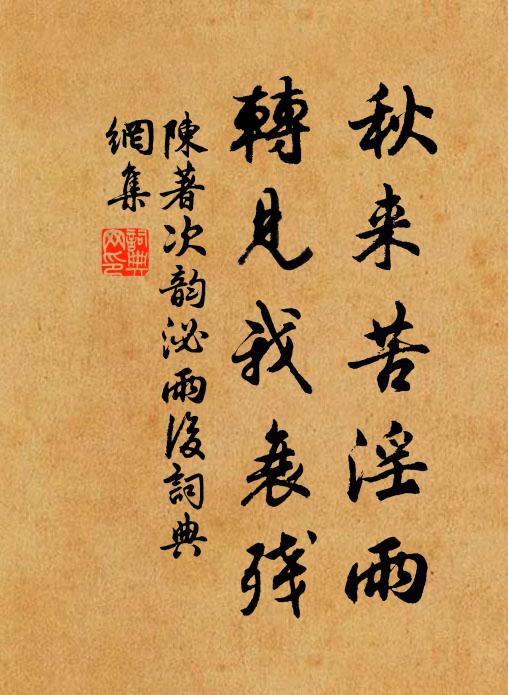 秋来苦淫雨
轉見我衰残
陳著次韵泌雨後詞典
網集
詞典網印